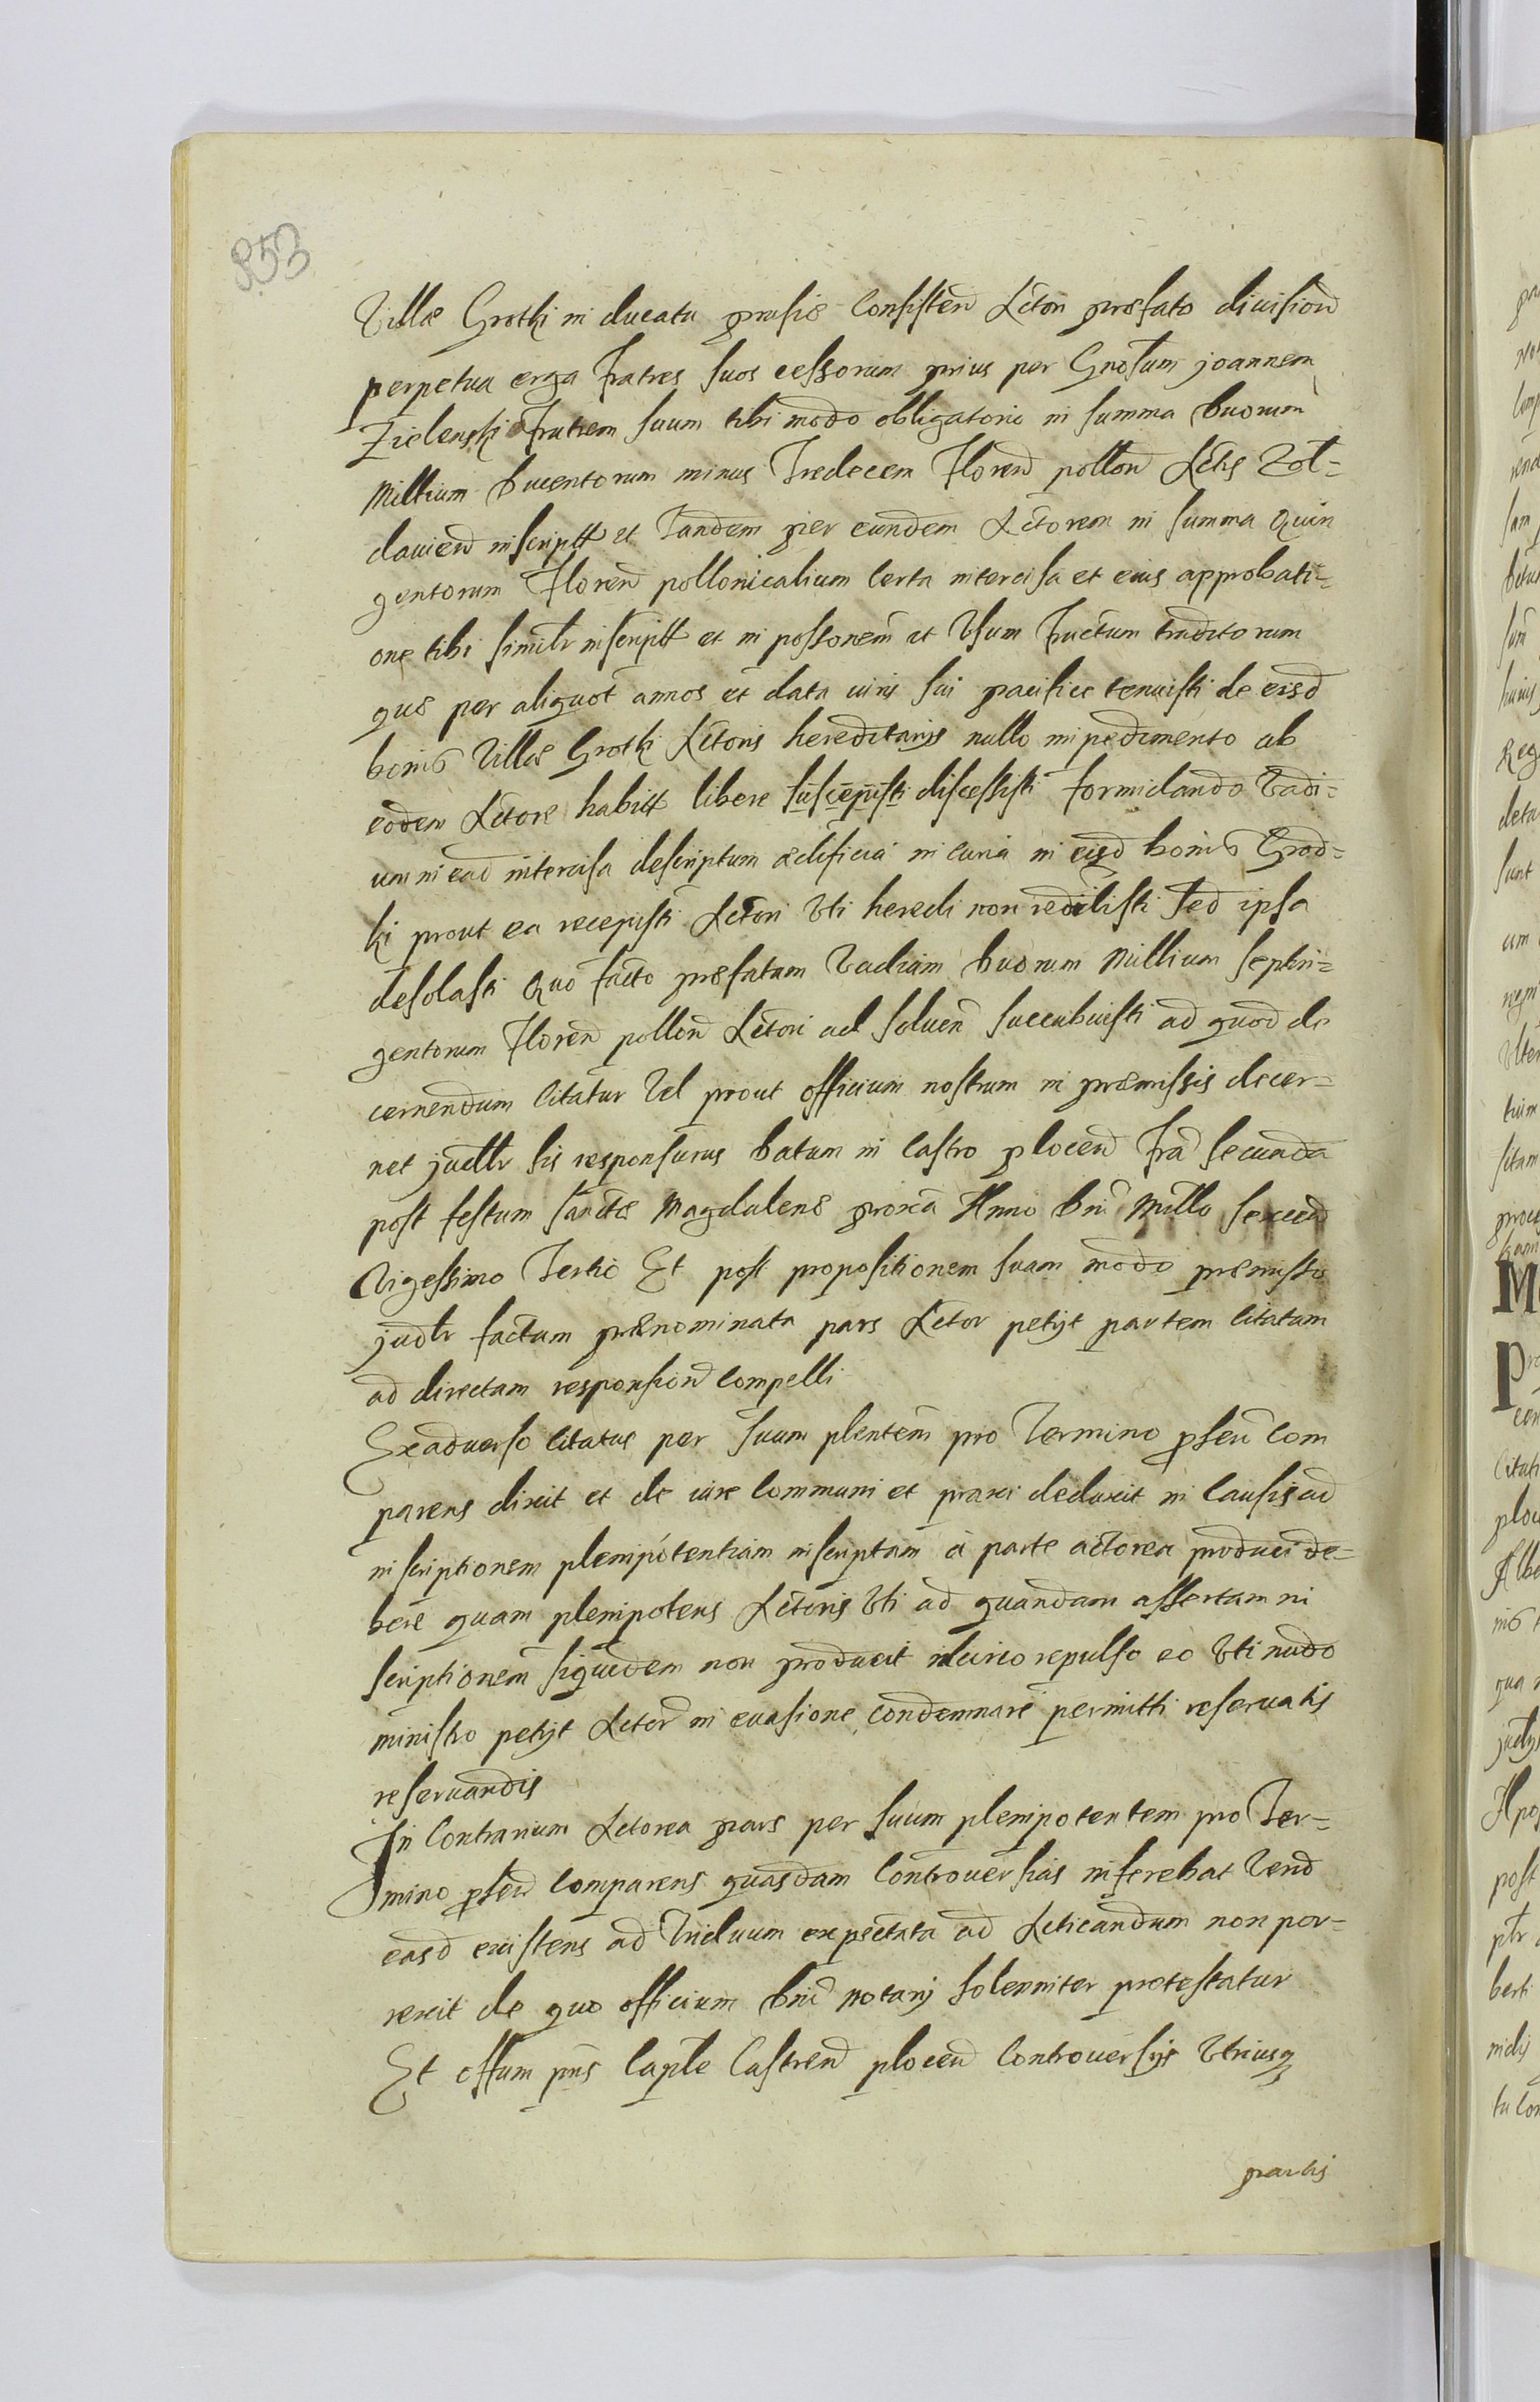 853
Villæ Grotki in ducatu prusiæ Consisteñ Actori præfato diuisioñ
perpetua erga Fratres suos cessorum prius per Gnosum joannem
Zielenski Fratrem suum tibi modo obligatorio in summa Duorum
Millium Ducentorum minus Tredecem Floreñ polloñ Actis Zol=
dauieñ inscriptt et Tandem per eundem Actorem in summa Quin
gentorum Floreñ pollonicalium Certa intercisa et eius approbati=
one tibi similr inscriptt et in possonem et Vsum Fructum traditorum
quæ per aliquot annos et data iuris sui pacifice tenuisti de eisd
bonis Villæ Grotki Actoris hereditarijs nullo impedimento ab
eodem Actore habitt libere suscepisti discessisti formidando Vadi=
um in ead intercisa descriptum ædificia in curia in eisd bonis Grod=
ki prout ea recepisti Actori Vti heredi non reddidisti sed ipsa
desolasti Quo facto præfatum Vadium Duorum Millium septin=
gentorum Floreñ polloñ Actori ad soluen succubuisti ad quod de
cernendum Citatur Vel prout officium nostrum in præmissis decer=
net judlr sis responsurus Datum in Castroploceñ Fra secunda
post festum sanctæ Magdalenæ proxa Anno Dni Millo sexceñ
Vigessimo Tertio Et post propositionem suam modo præmisso
judlr factam prænominata pars Actor petijt partem citatam
ad directam responsioñ compelli
Exaduerso citatus per suum plentem pro Termino pseñ Com
parens dixit et de iure Communi et praxi deduxit in Causis ad
inscriptionem plenipotentiam inscriptam à parte actorea produci de=
bere quam plenipotens Actoris Vti ad quandam assertam in
scriptionem siquidem non producit idcirco repulso eo Vti nudo
ministro petijt Actor in euasione condemnare permitti reseruatis
reseruandis
In Contrarium Actorea pars per suum plenipotentem pro Ter=
mino pseñ Comparens quasdam Controuersias inferebat Vend
easd existens ad Triduum expectata ad Acticandum non por=
rexit de quo officium Dni Notarij solenniter protestatur
Et offum pns Caple Castreñ ploceñ Controuersijs Vtriusq
partis